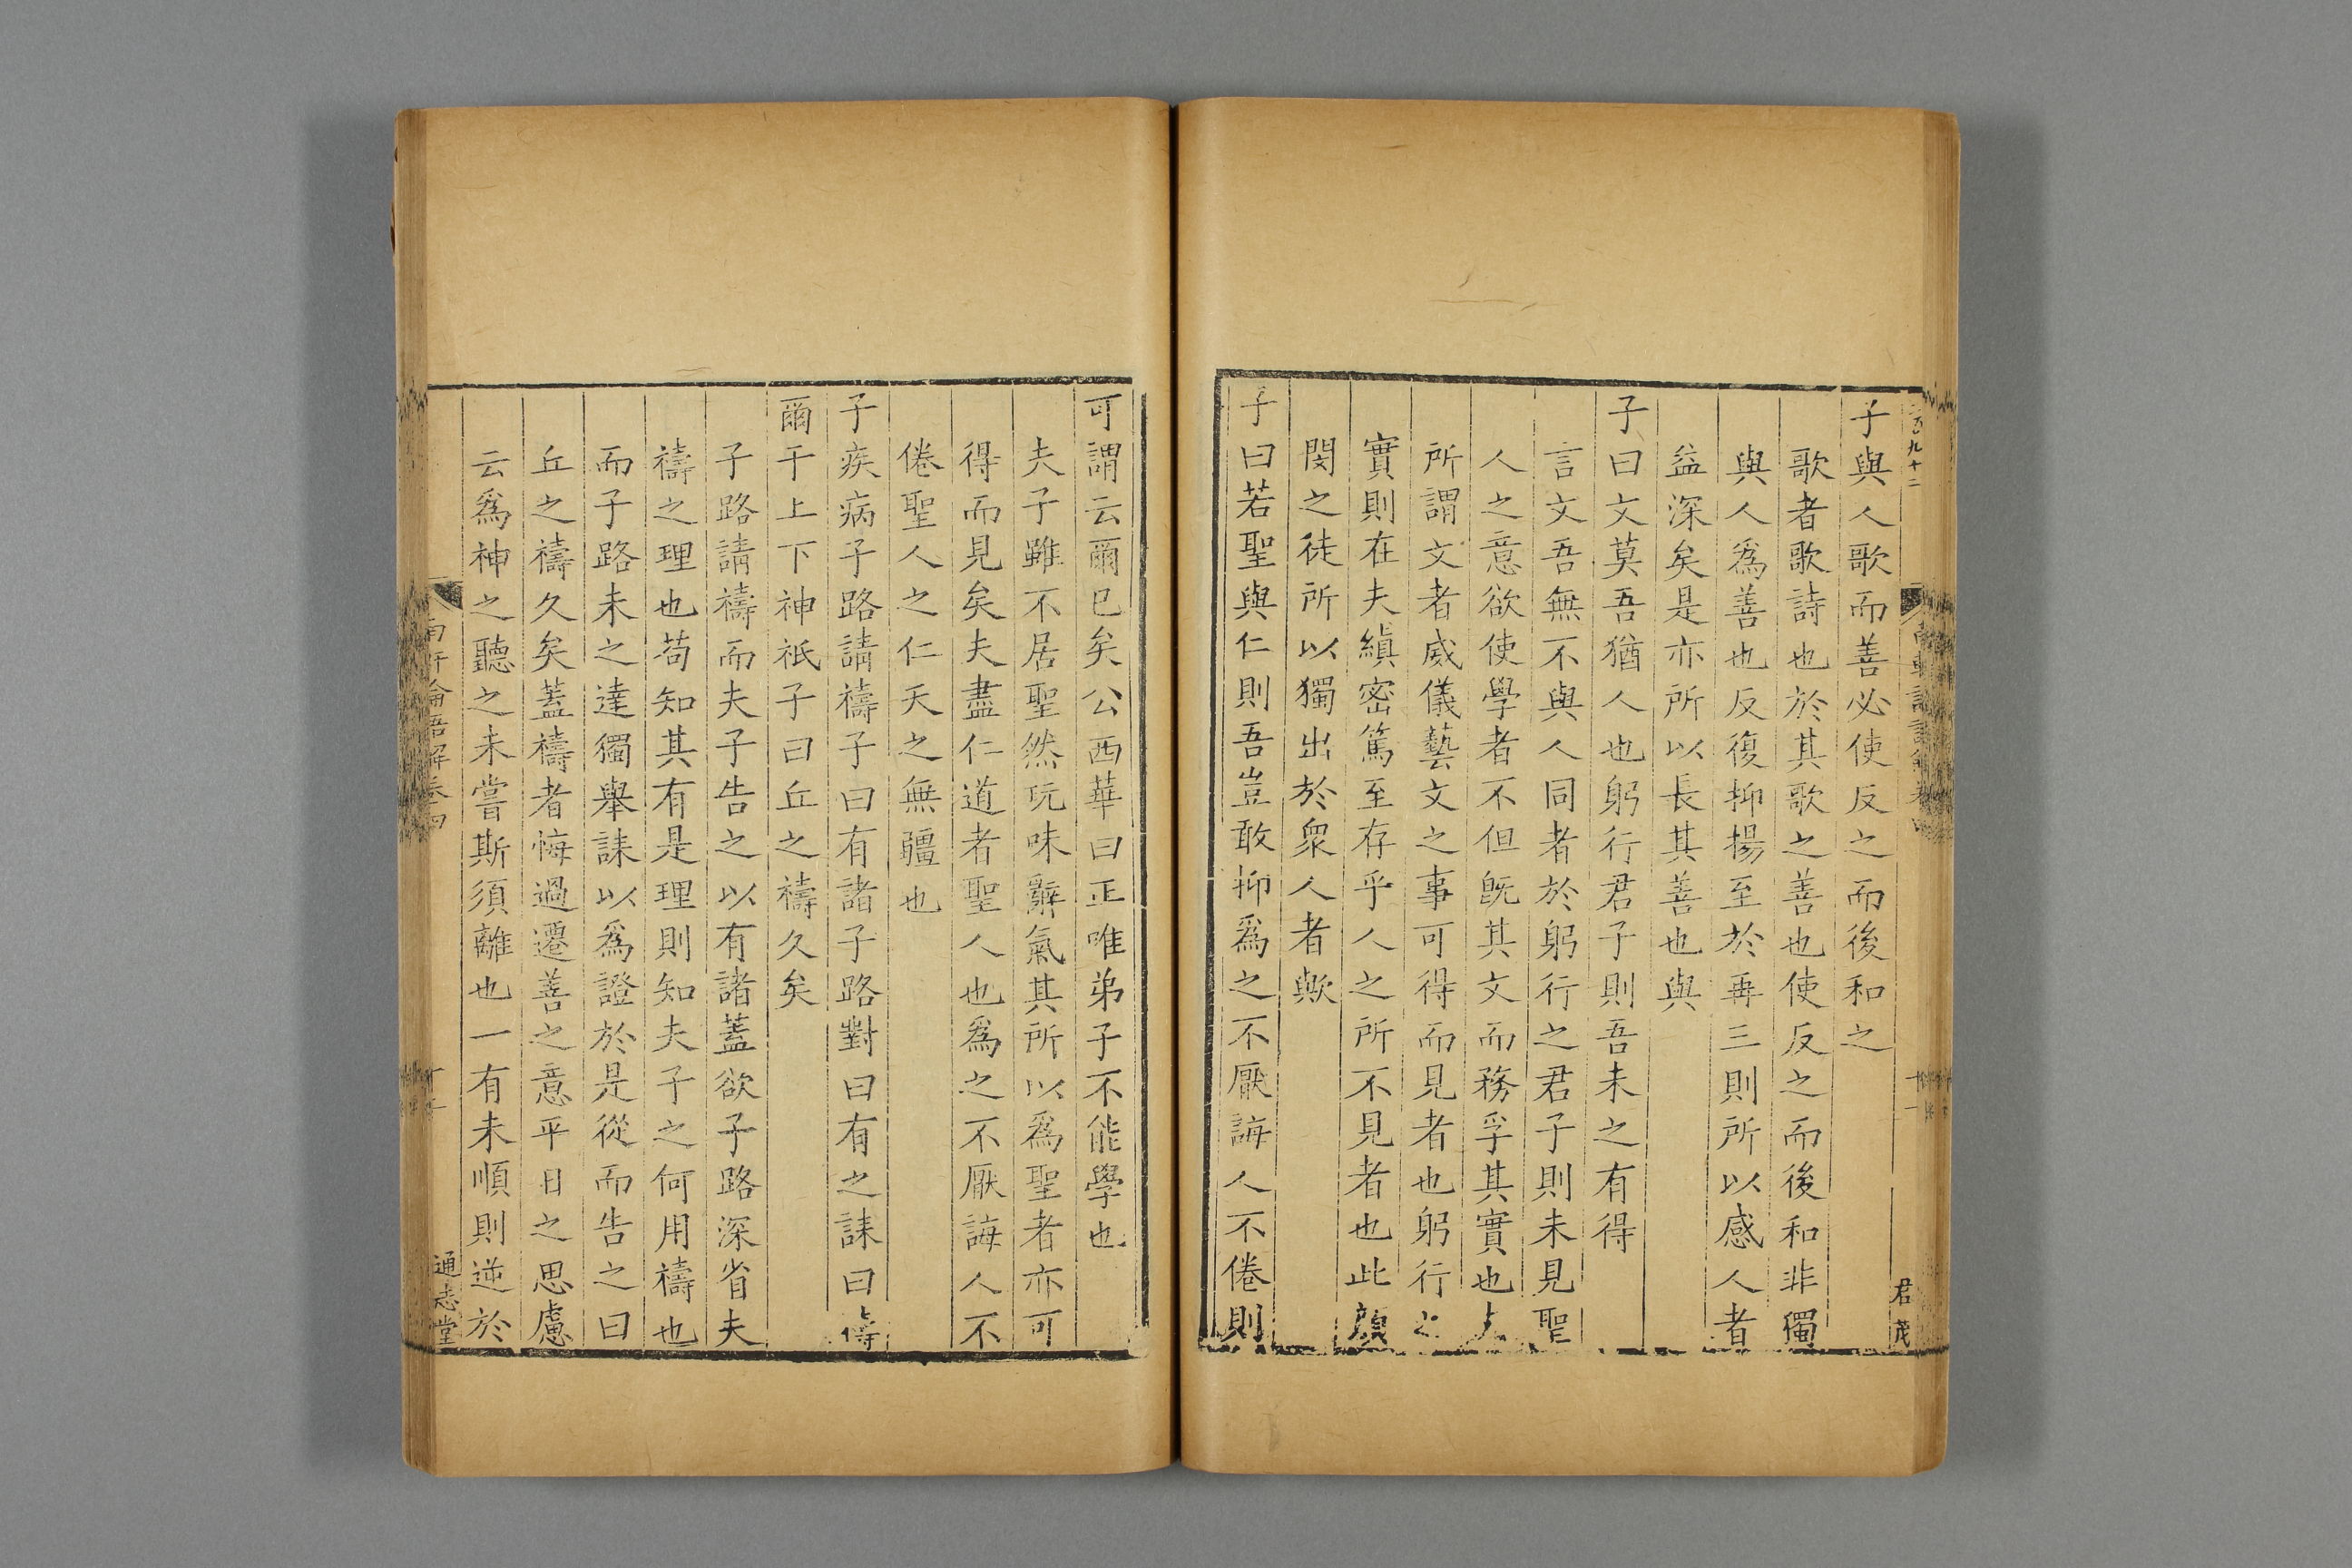 子與人歌而善必使反之而後和之
歌者歌詩也於其歌之善也使反之而後和非獨
與人爲善也反復抑揚至於再三則所以感人者
益深矣是亦所以長其善也與
子曰文莫吾猶人也躬行君子則吾未之有得
言文吾無不與人同者於躬行之君子則未見聖
人之意欲使學者不但旣其文而務孚其實也夫
所謂文者威儀藝文之事可得而見者也躬行之
實則在夫縝密篤至存乎人之所不見者也此顏
閔之徒所以獨出於衆人者歟
子曰若聖與仁則吾豈敢抑爲之不厭誨人不倦則
君茂
可謂云爾已矣公西華曰正唯弟子不能學也
夫子雖不居聖然玩味辭氣其所以爲聖者亦可
得而見矣夫盡仁道者聖人也爲之不厭誨人不
倦聖人之仁天之無疆也
子疾病子路請禱子曰有諸子路對曰有之誄曰禱
爾于上下神祇子曰丘之禱久矣
子路請禱而夫子告之以有諸蓋欲子路深省夫
禱之理也苟知其有是理則知夫子之何用禱也
而子路未之達獨舉誄以爲證於是從而告之曰
丘之禱久矣蓋禱者悔過遷善之意平日之思慮
云爲神之聽之未嘗斯須離也一有未順則逆於
通志堂